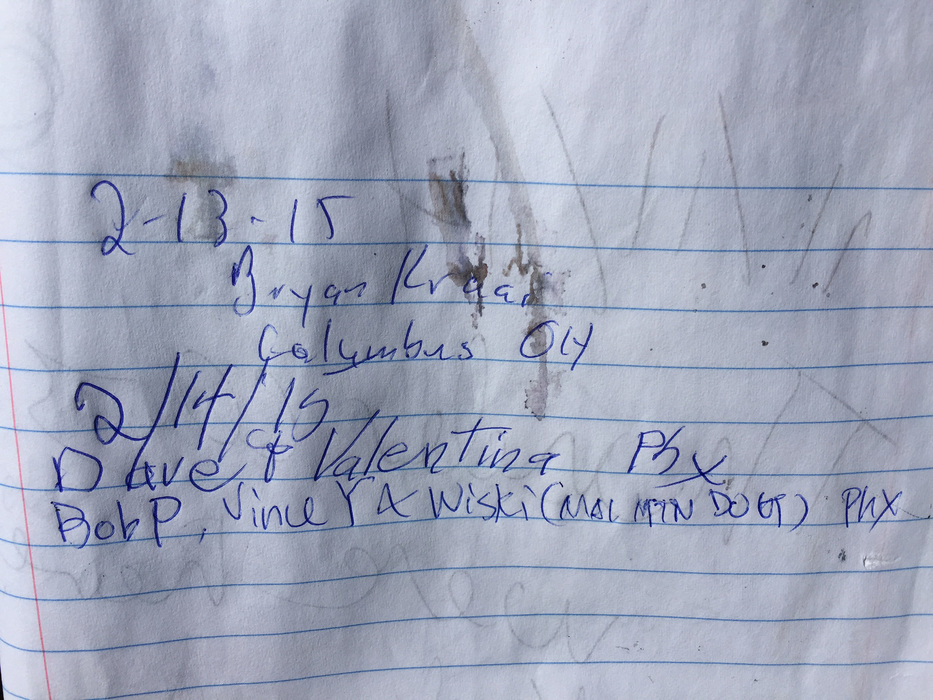 2-13-15
Bryan
Columbus OH
2/14/15
Dave & Valentina Phx
Bob P, Vince Y & Wiski ( MTN DOG) PHX